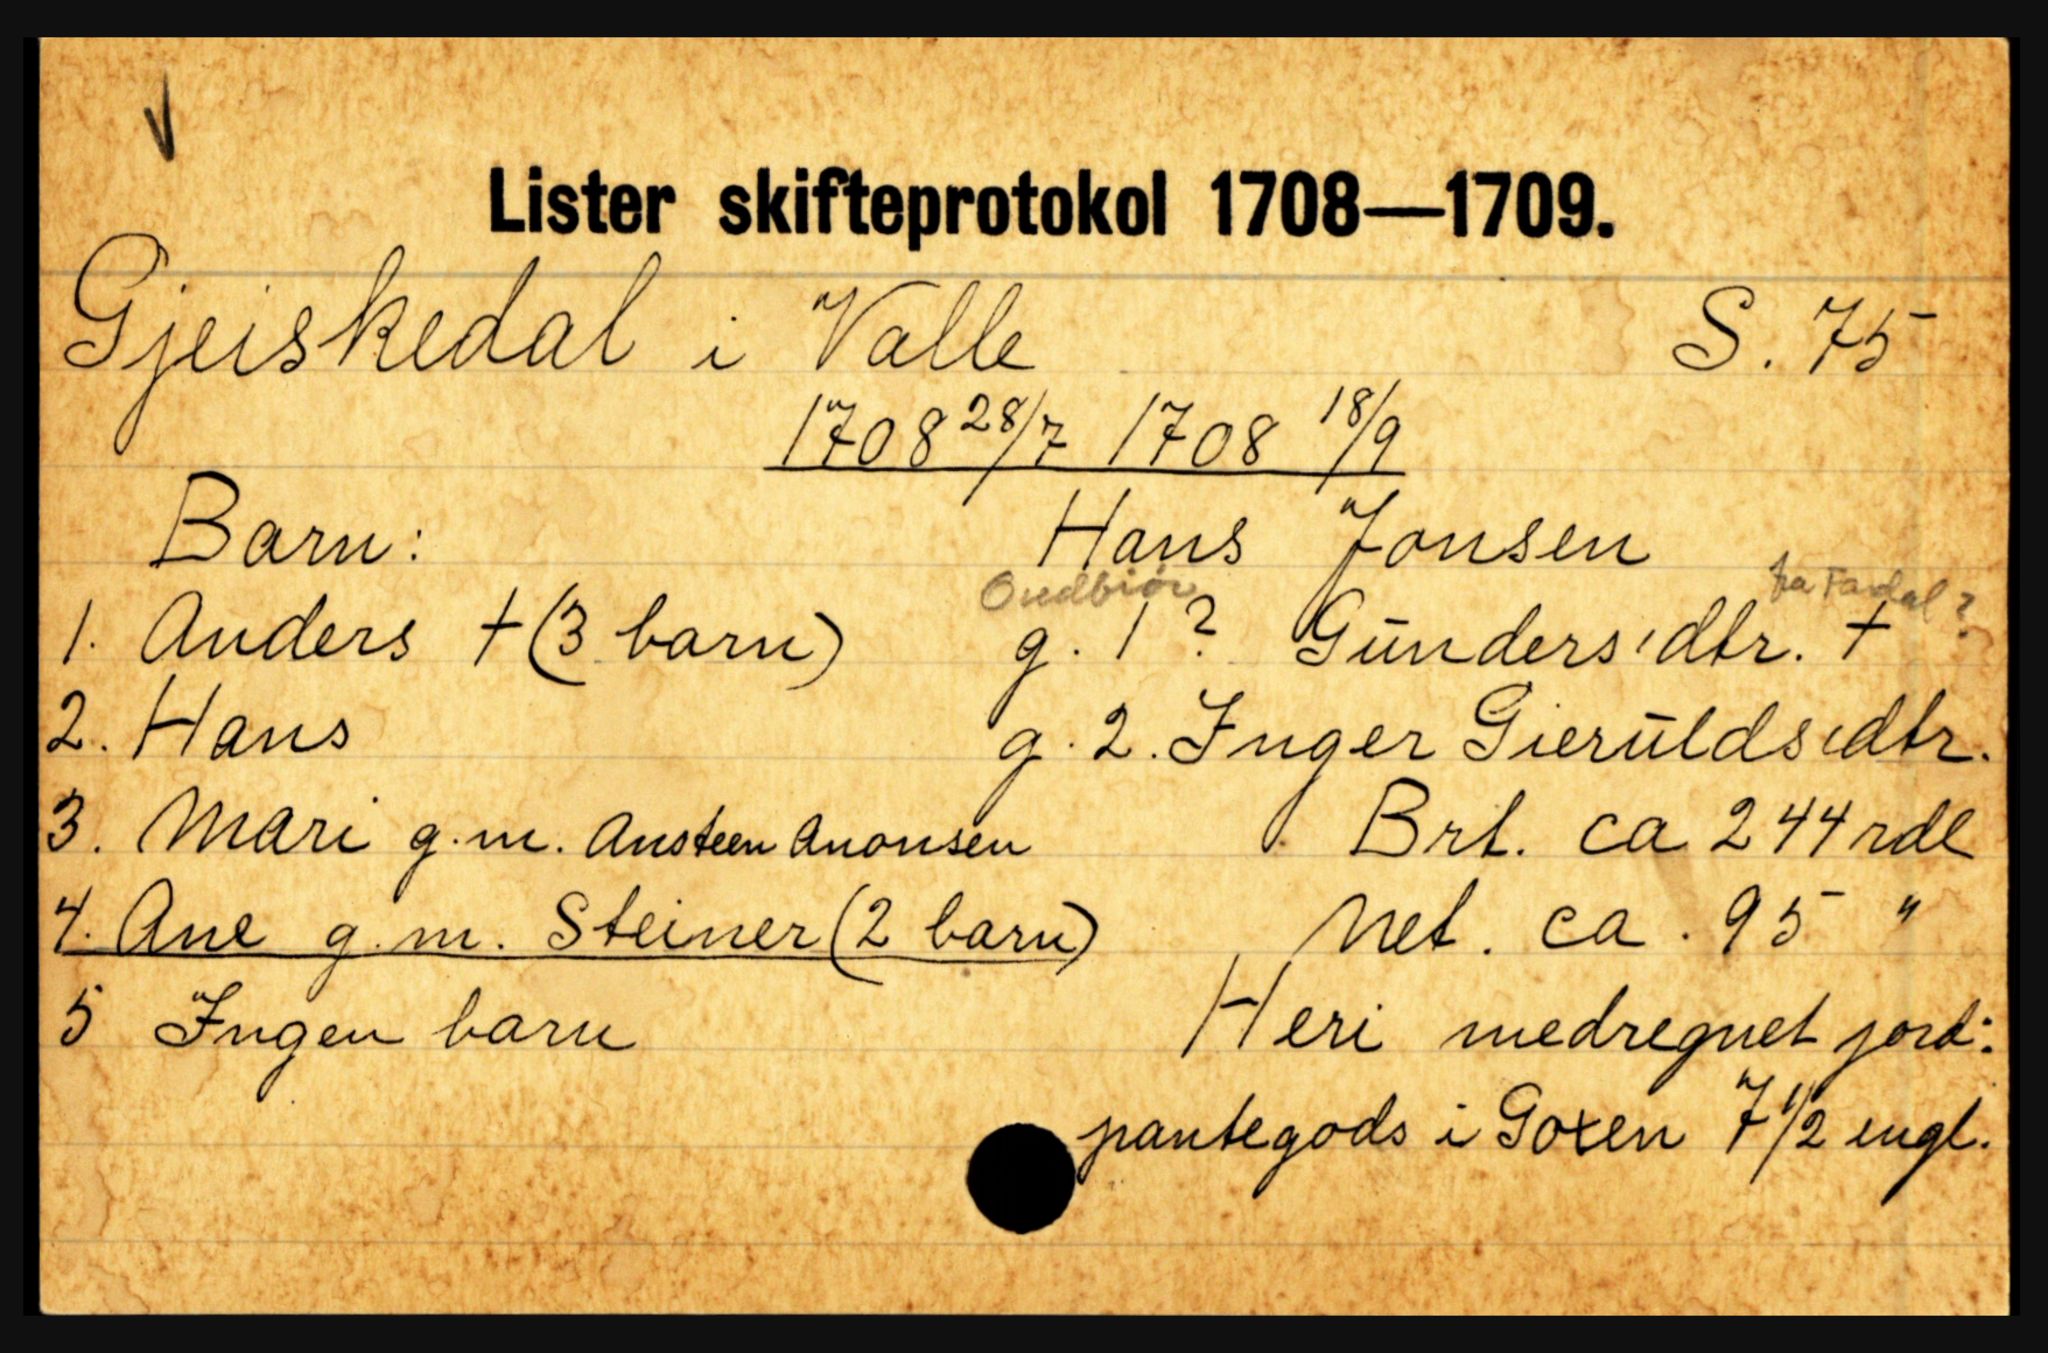 V
Lister skifteprotokol 1708—1709.
Gjeiskedal i Valle S. 75
1708 28/7 1708 18/9
Barn: Hans Jonsen
Ovedbiør fra Fardal?
1. Anders † (3 barn) g. 1 ? Gūnders'dtr. †
2. Hans g. 2. Inger Gierūlds'dtr.
3. Mari g.m. Ansteen Anonsen Brt. ca 244 rdl
4. Ane g.m. Steiner (2 barn) Net. ca. 95 "
5 Ingen barn Heri medregnet jord:
pantegods i Goxen 7 1/2 engl.